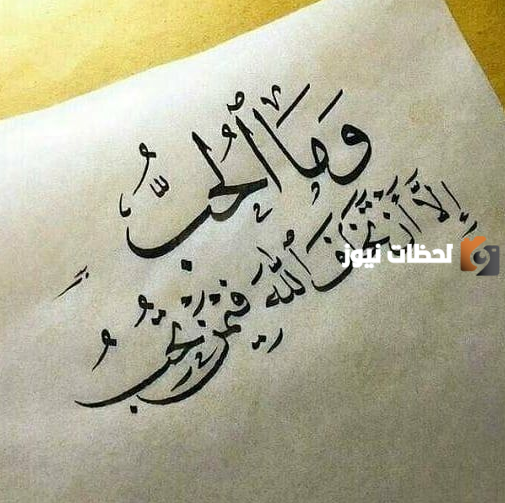 وَمَا الحُبُّ
إِلَّا أَنْ تَخَافَ اللهَ فِيمَنْ تُحِبُّ
لحظات نيوز